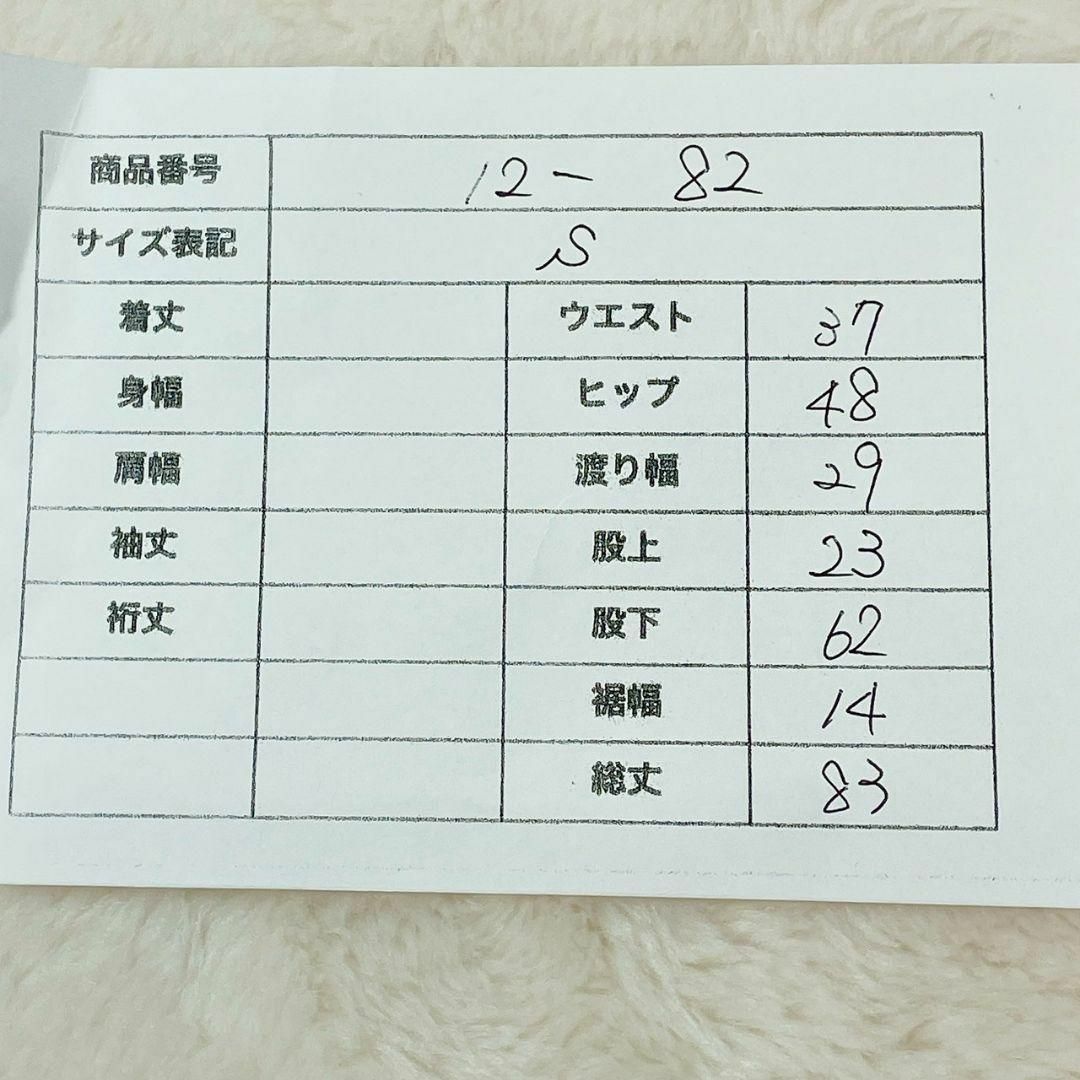 商品番号 12- 82
サイズ表記 S
着丈 ウエスト 37
身幅 ヒップ 48
肩幅 渡り幅 29
袖丈 股上 23
裄丈 股下 62
裾幅 14
総丈 83